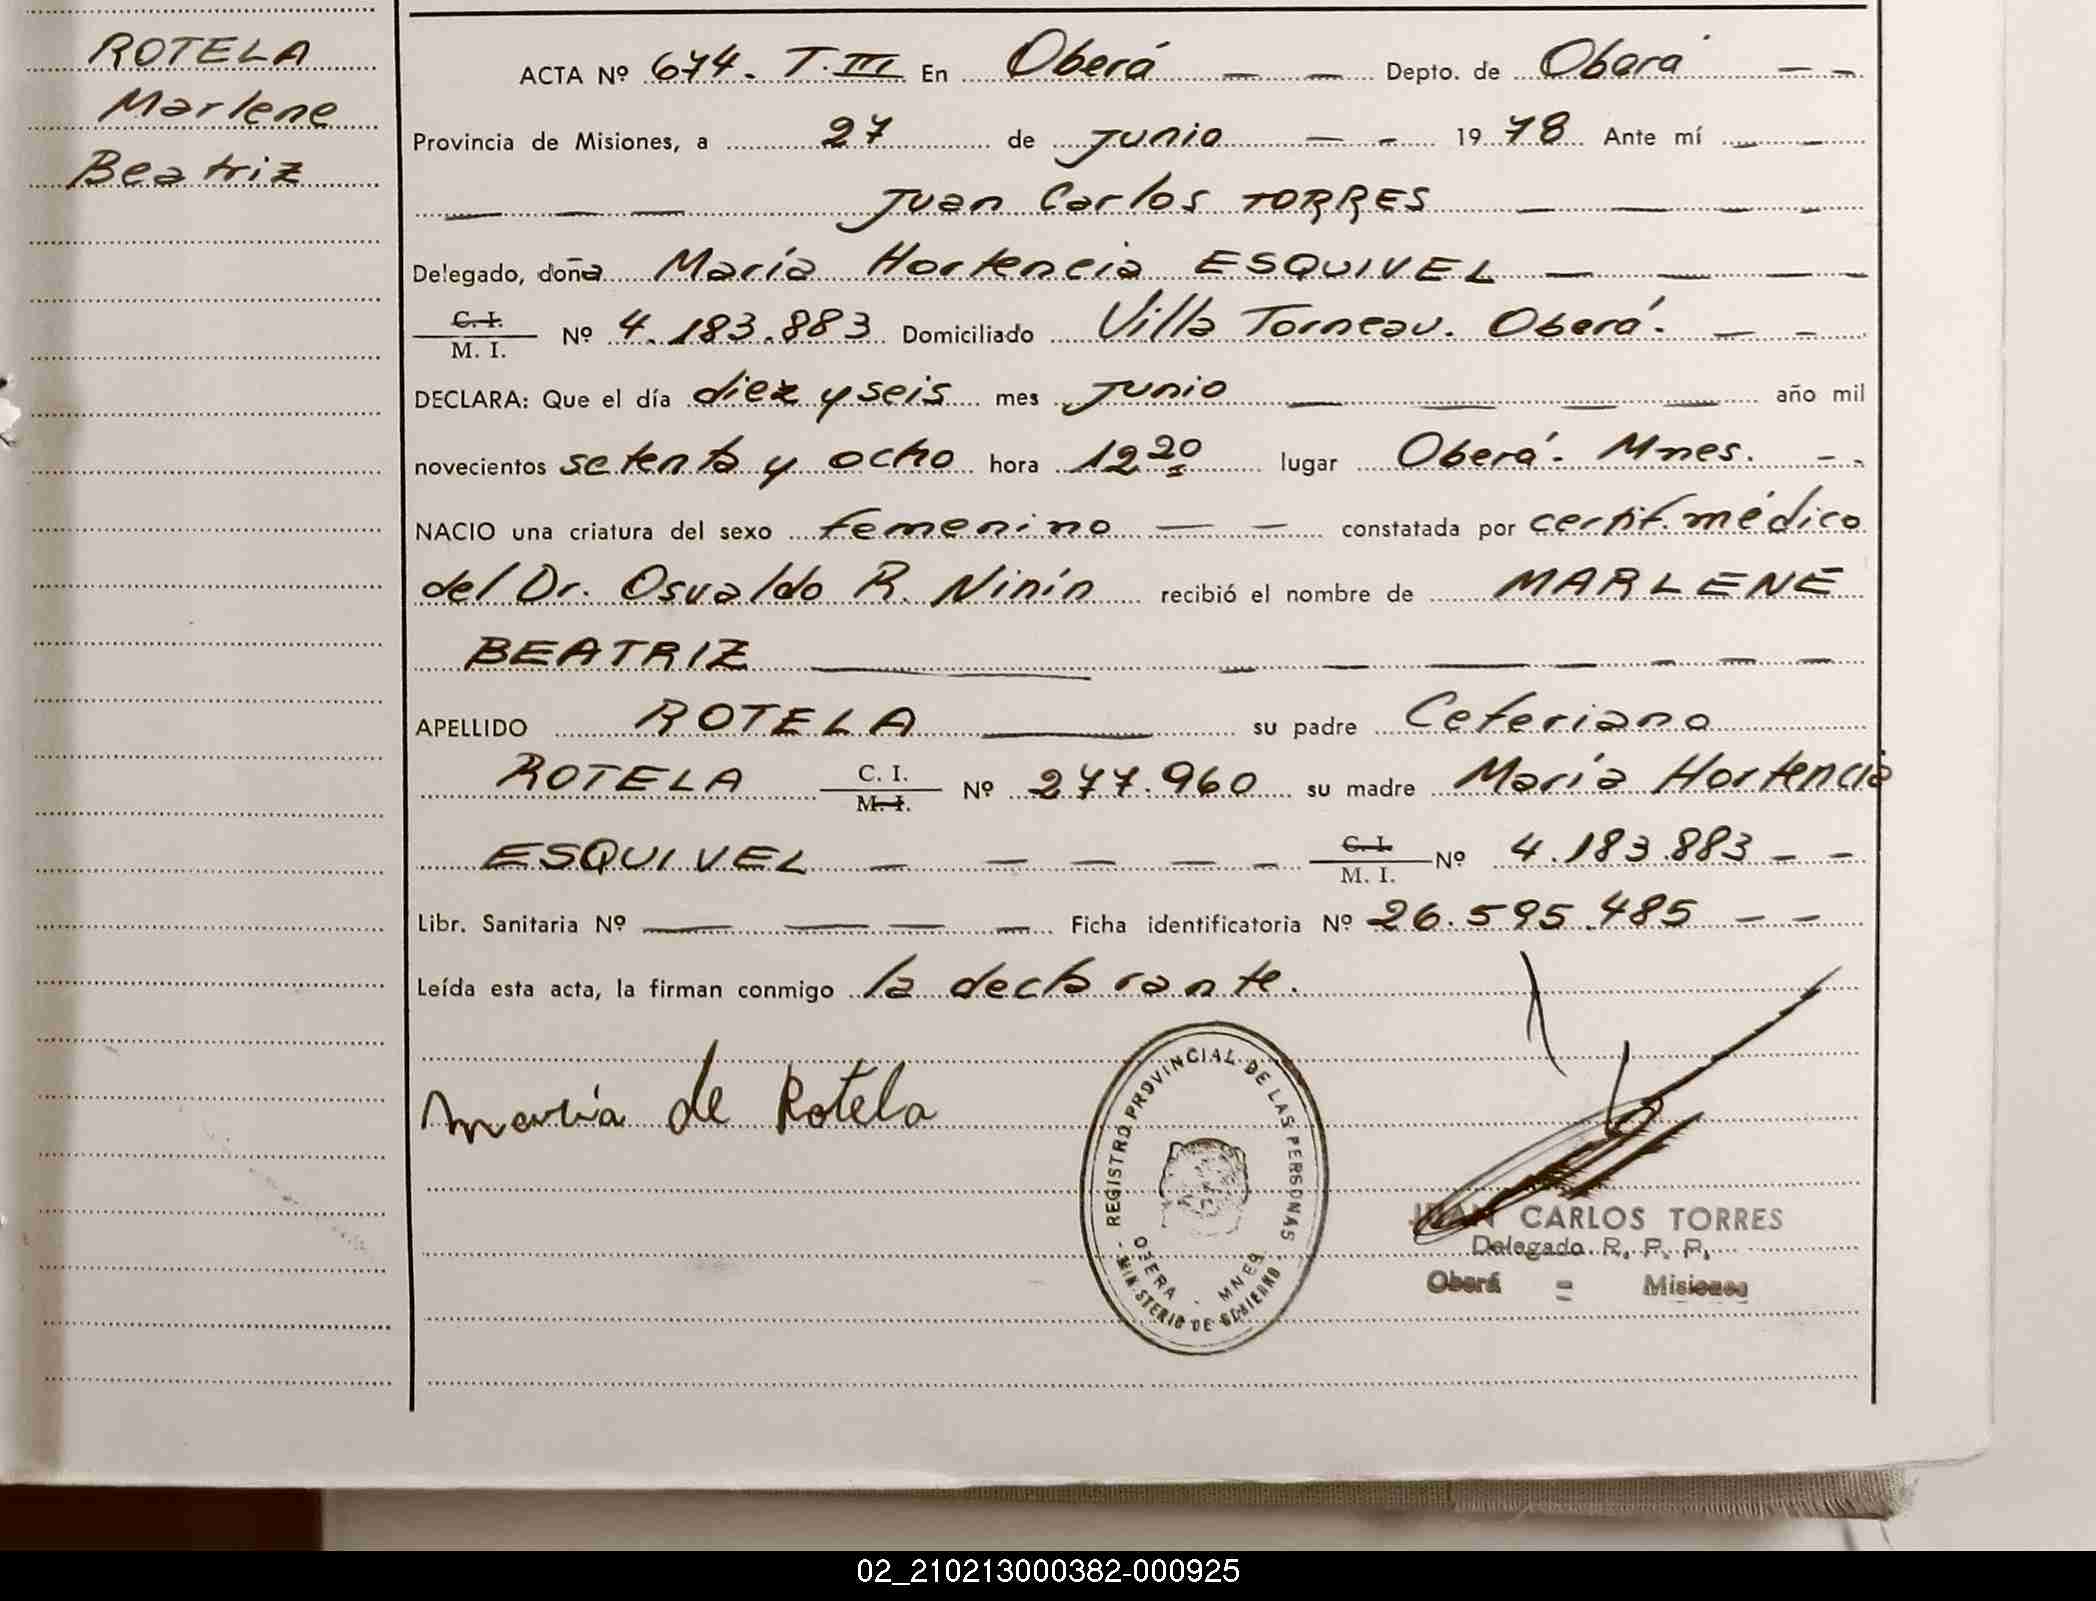 ROTELA
Marlene
Beatriz
ACTA Nº 674. T.III En Oberá Depto. de Oberá
Provincia de Misiones, a 27 de junio 1978 Ante mí
Juan Carlos TORRES
Delegado, doña María Hortencia ESQUIVEL
C. I.
M. I. Nº 4.183.883 Domiciliado Villa Torneau. Oberá.
DECLARA: Que el día diez y seis mes junio año mil
novecientos setenta y ocho hora 12 20 lugar Oberá. Mnes.
NACIO una criatura del sexo femenino constatada por certif. médico
del Dr. Osvaldo R. Ninín recibió el nombre de MARLENE
BEATRIZ
APELLIDO ROTELA su padre Ceferiano
ROTELA C. I. M. I. Nº 277.960 su madre María Hortencia
ESQUIVEL C. I. M. I. Nº 4.183.883
Libr. Sanitaria Nº Ficha identificatoria Nº 26.595.485
Leída esta acta, la firman conmigo la declarante.
María de Rotela
REGISTRO PROVINCIAL DE LAS PERSONAS
OBERA - MNES
MINISTERIO DE GOBIERNO
JUAN CARLOS TORRES
Delegado R. P. P.
Oberá - Misiones
02_210213000382-000925